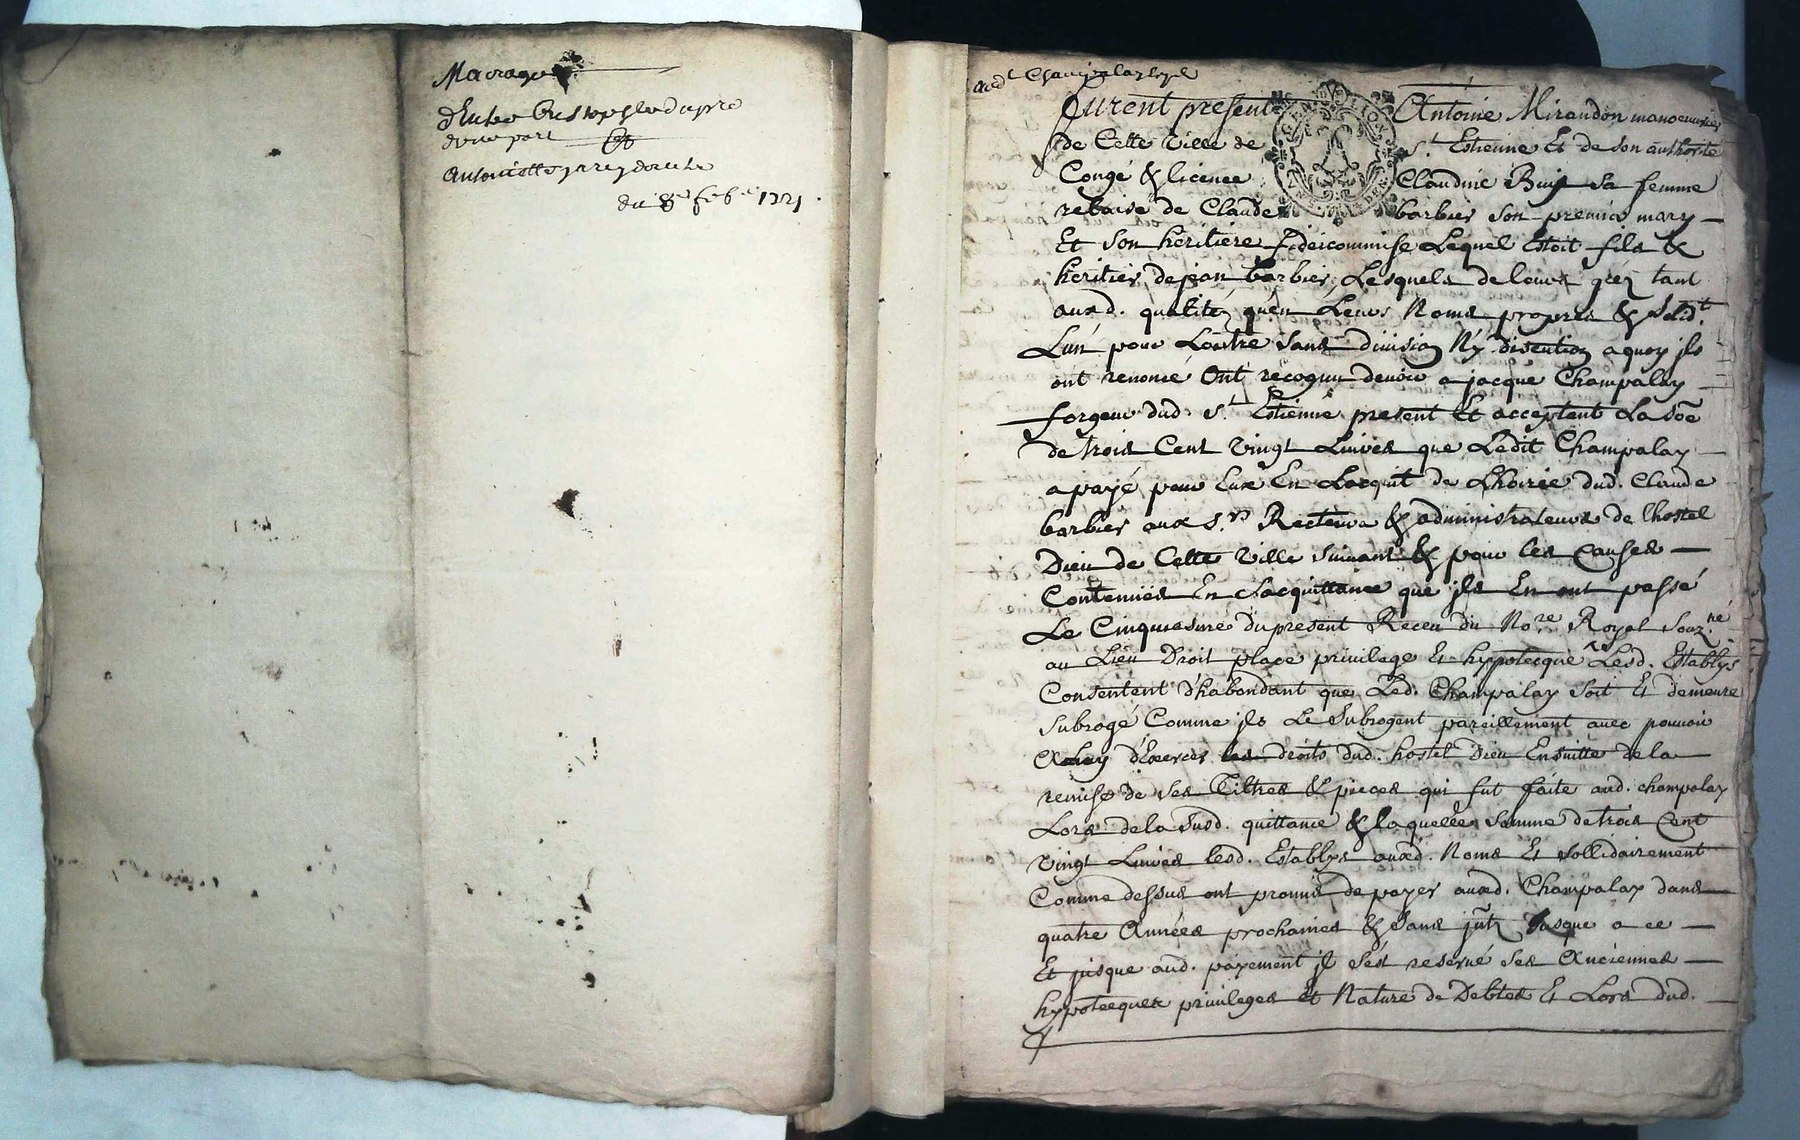 Mariage
d'Entre Christophle dupré
d'une part Et
Antoinette d'autre
du 8e feb. 1721.
aud. Champalay
Furent presents Antoine Mirandon manoeuvrier
de Cette Ville de St. Estienne Et de son authorité
Congé & licence Claudine Buis sa femme
relaisé de Claude barbier son premier mary
Et son heritiere fideicommise Lequel Estoit fils &
heritier de jean barbier, Lesquels de leurs grez tant
auxd. qualitez qu'en Leurs Noms propres & solidt.
L'un pour Lautre sans division Ny discution a quoy jls
ont renoncé Ont recognu devoir a jacque Champalay
forgeur dud. St. Estienne present Et acceptant La sõe
de trois Cent vingt Livres que Ledit Champalay
a payé pour Eux En Lacquit de Lhoirie dud. Claude
barbier aux Srs. Recteurs & administrateurs de lhostel
Dieu de Cette Ville suivant & pour les Causes
Contenues En Lacquittance que jls En ont passé
Le Cinquiesme du present Receu du Nore. Royal souzné.
au Lieu Droit place privilege Et hypotecque Lesd. Establys
Consentent d'habondant que Led. Champalay soit Et demeure
subrogé Comme jls Le subrogent pareillement avec pouvoir
a Luy d'Exercer les droits dud. hostel Dieu Ensuitte de la
remise de ses Tiltres & pieces qui fut faite aud. champalay
Lors de la susd. quittance & laquelle somme de trois Cent
vingt Livres lesd. Establys auxd. Noms Et sollidairement
Comme dessus ont promis de payer aud. Champalay dans
quatre Années prochaines & sans jntz. jusque a ce
Et jusque aud. payement jl s'est reservé ses Anciennes
hypotecques privileges et Nature de Debtes Et Lors dud.